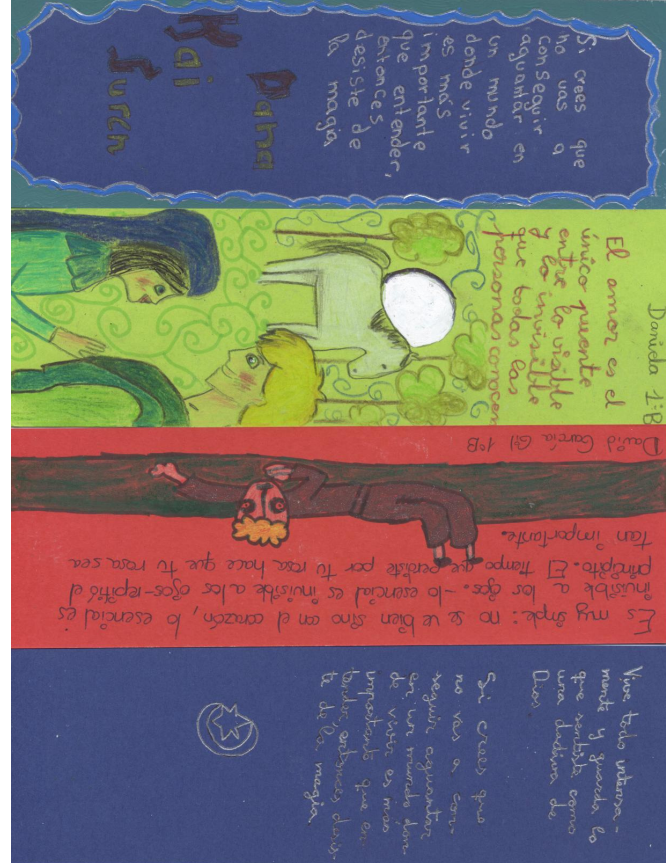 Si crees que
no vas a
conseguir
aguantar en
un mundo
donde vivir
es más
importante
que entender,
entonces
desiste de
la magia
Dana
Kai
Suren
Daniela 1ºB
El amor es el
único puente
entre lo visible
y lo invisible
que todas las
personas conocen
Es muy simple: no se ve bien sino con el corazón, lo esencial es
invisible a los ojos. -lo esencial es invisible a los ojos-repitió el
principito. El tiempo que perdiste por tu rosa hace que tu rosa sea
tan importante.
David García Gil 1ºB
Vive todo intensa-
mente y guarda lo
que sentiste como
una dadiva de
Dios
Si crees que
no vas a con-
seguir aguantar
en un mundo don-
de vivir es mas
importante que en
tender entonces desis-
te de la magia.